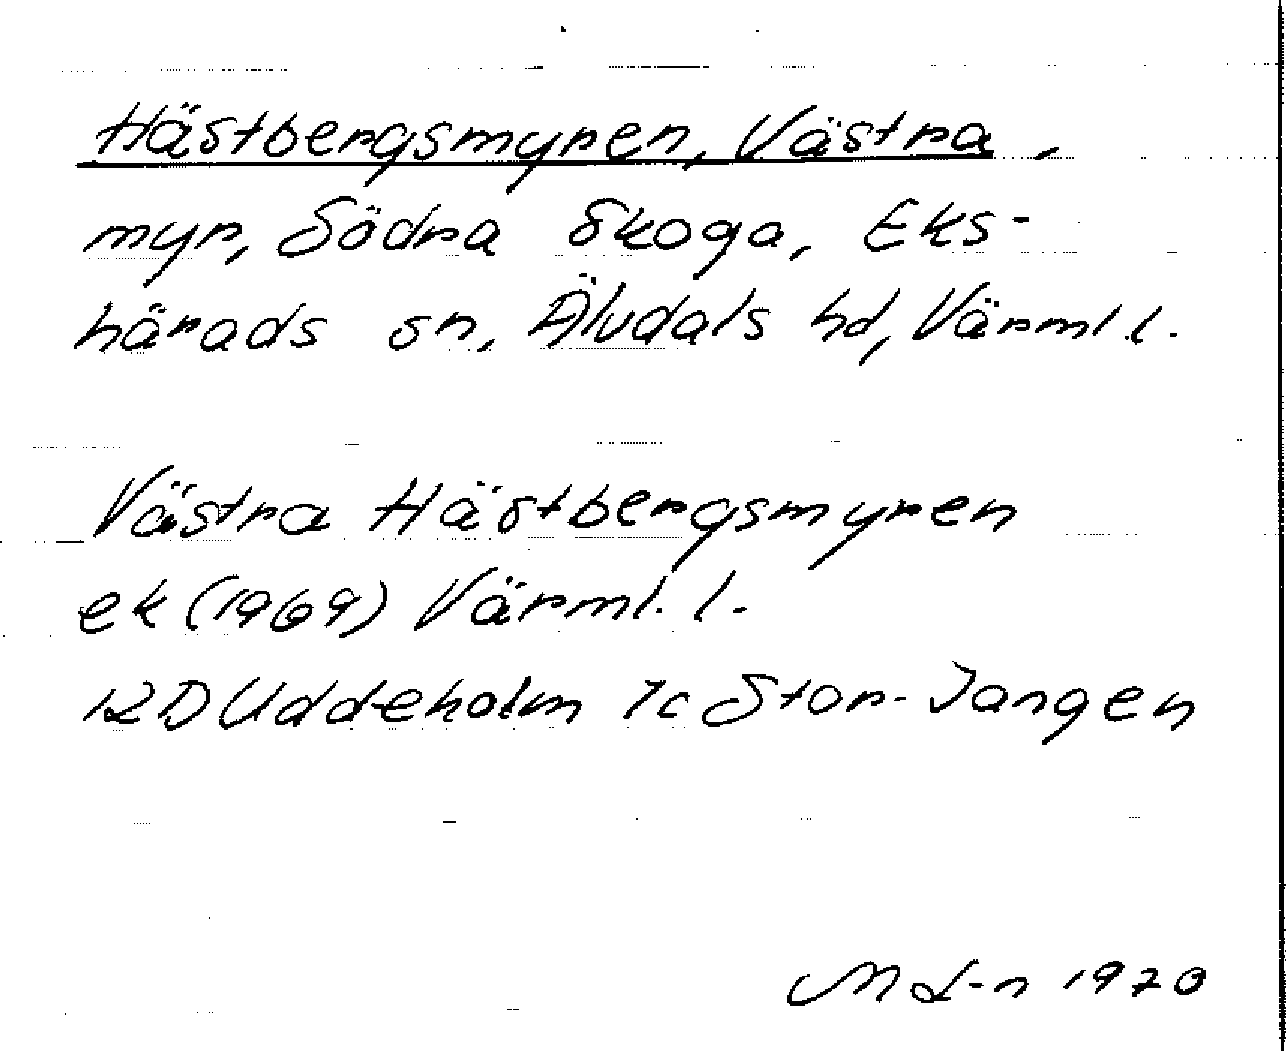 Hästbergsmyren, Västra,
myr, Södra Skoga, Eks-
härads sn, Älvdals hd, Värml. l.
Västra Hästbergsmyren
ek (1969) Värml. l.
12D Uddeholm 7c Stor-Jangen
M L-n 1970